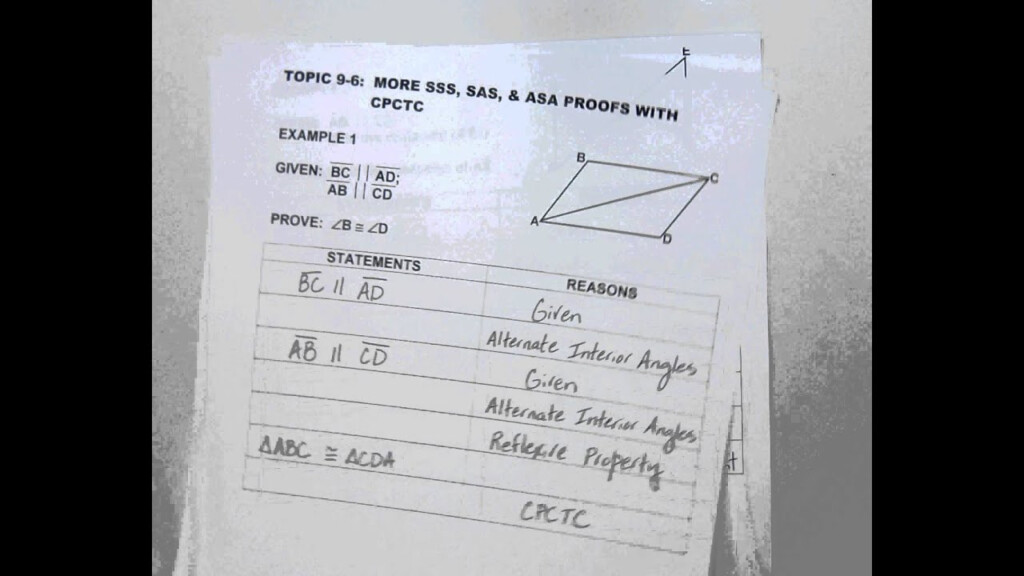 E
TOPIC 9-6: MORE SSS, SAS, & ASA PROOFS WITH
CPCTC
EXAMPLE 1
GIVEN: BC || AD;
AB || CD
PROVE: ∠B ≅ ∠D
B
C
A
D
STATEMENTS REASONS
BC || AD Given
Alternate Interior Angles
AB || CD Given
Alternate Interior Angles
Reflexive Property
ΔABC ≅ ΔCDA
CPCTC